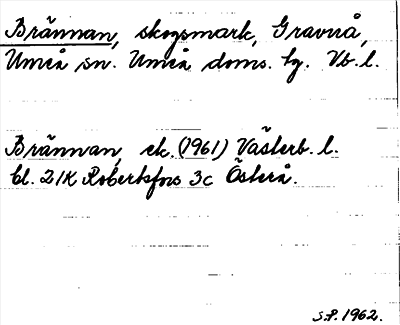 Brännan, skogsmark, Gravnå,
Umeå sn. Umeå doms. tg. Vb. l.
Brännan, ek. (1961) Västerb. l.
bl. 21K Robertsfors 3c Österå.
S.P. 1962.